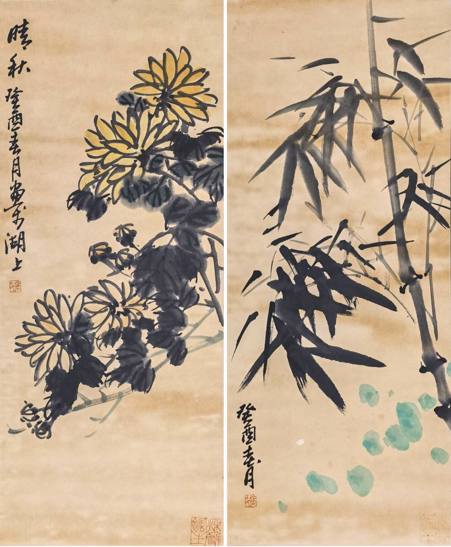 晴秋癸酉春月画于湖上
癸酉春月